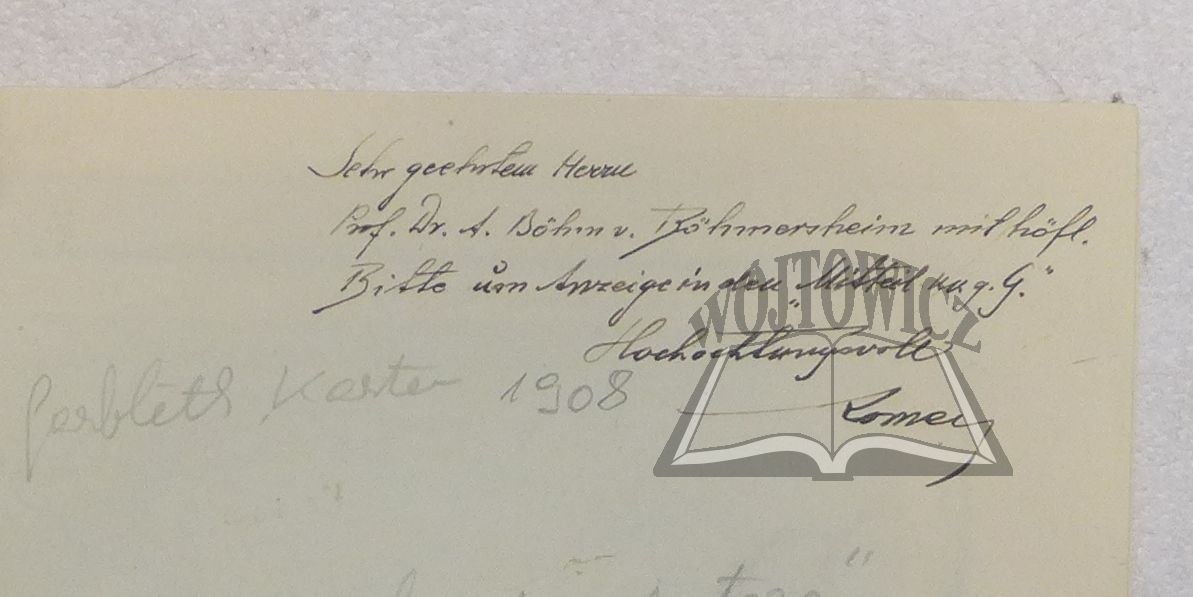 Sehr geehrtem Herrn
Prof. Dr. A. Böhm v. Böhmersheim mit höfl.
Bitte um Anzeige in den „Mitteil k.k.g.G.“
Hochachtungsvoll
Romer
WOJTOWICZ
Karten 1908